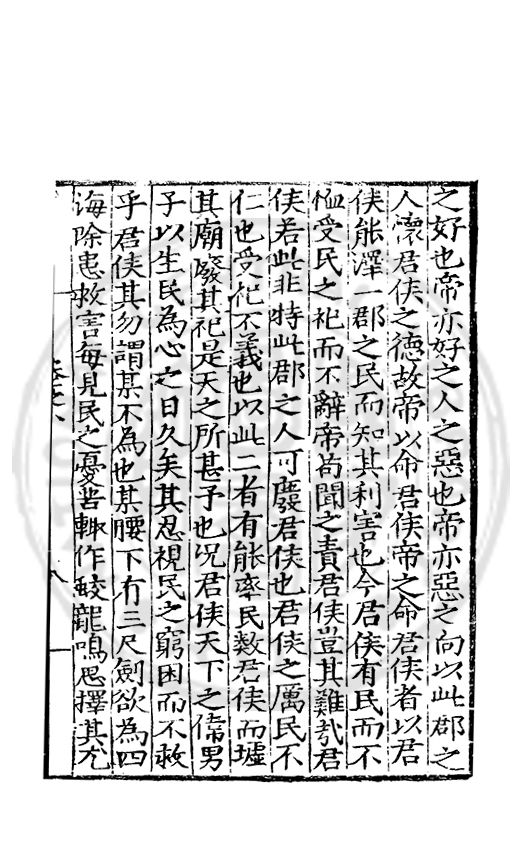 之好也帝亦好之人之惡也帝亦惡之向以此郡之
人懷君侯之德故帝以命君侯帝之命君侯者以君
侯能澤一郡之民而知其利害也今君侯有民而不
恤受民之祀而不辭帝茍聞之責君侯豈其難哉君
侯若此非特此郡之人可廢君侯也君侯之厲民不
仁也受祀不義也以此二者有能率民數君侯而墟
其廟廢其祀是天之所甚予也况君侯天下之偉男
子以生民為心之日久矣其忍視民之窮困而不救
乎君侯其勿謂某不為也某腰下有三尺劍欲為四
海除患救害每見民之憂苦輙作蛟龍鳴思擇其尤
八